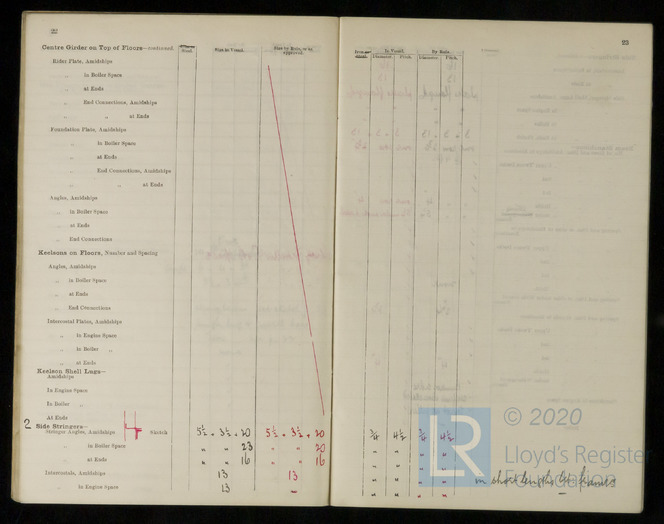 22
Centre Girder on Top of Floors—continued.
Size in Vessel.
Size by Rule, or as approved.
In Vessel.
By Rule.
Diameter
Pitch.
Diameter
Pitch.
23
Rider Plate, Amidships
„ in Boiler Space
„ at Ends
„ End Connections, Amidships
„ „ at Ends
Foundation Plate, Amidships
„ in Boiler Space
„ at Ends
„ End Connections, Amidships
„ „ at Ends
Angles, Amidships
„ in Boiler Space
„ at Ends
„ End Connections
Keelsons on Floors, Number and Spacing
Angles, Amidships
„ in Boiler Space
„ at Ends
„ End Connections
Intercostal Plates, Amidships
„ in Engine Space
„ in Boiler „
„ at Ends
Keelson Shell Lugs—
Amidships
In Engine Space
In Boiler „
At Ends
2 Side Stringers—
Stringer Angles, Amidships Sketch 5½ × 3½ × 20 5½ × 3½ × 20 ¾ 4½ ¾ 4½
„ in Boiler Space „ „ 23 „ „ 20 „ „ „ „
„ at Ends „ „ 16 „ „ 16 „ „ „ „
Intercostals, Amidships 13 13 „ „ „ „ in short lengths frames
„ in Engine Space 13 „ „ „ „ „
© 2020
LR
Lloyd's Register
Foundation